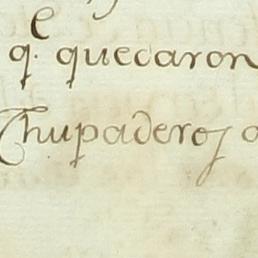 q.^e quedaron
Chupaderos